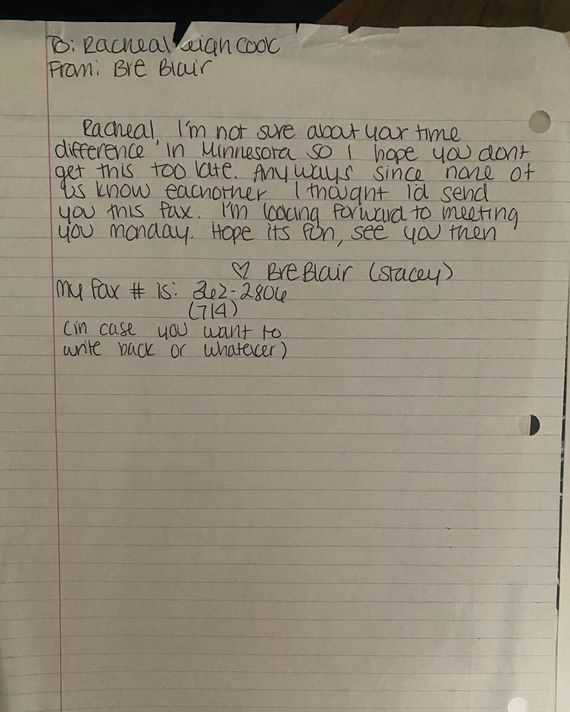 To: Racheal Leigh Cook
From: Bre Blair
Racheal, I'm not sure about your time
difference in Minnesota so I hope you dont
get this too late. Anyways since none of
us know eachother I thought I'd send
you this fax. I'm looking forward to meeting
you monday. Hope its fun, see you then
♡ Bre Blair (Stacey)
My fax # is: 362-2806
(714)
(in case you want to
write back or whatever)